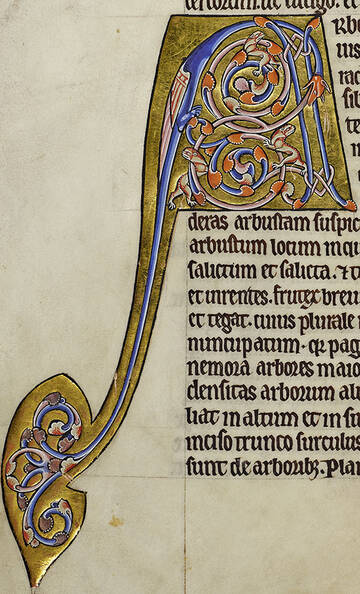 tersorum. ut lucigo. et
Arbo
uis
rac
sib
te
deras arbustam suspic
arbustum locum in qu
salictum et salicta. ⁊ t
et inrentes. frutex brev
et tegat. cuius plurale 
nuncupatum. qr pag
nemora arbores maio
densitas arborum alt
liat in altum et in su
inciso trunco surculus
sunt de arboribꝫ. Plan